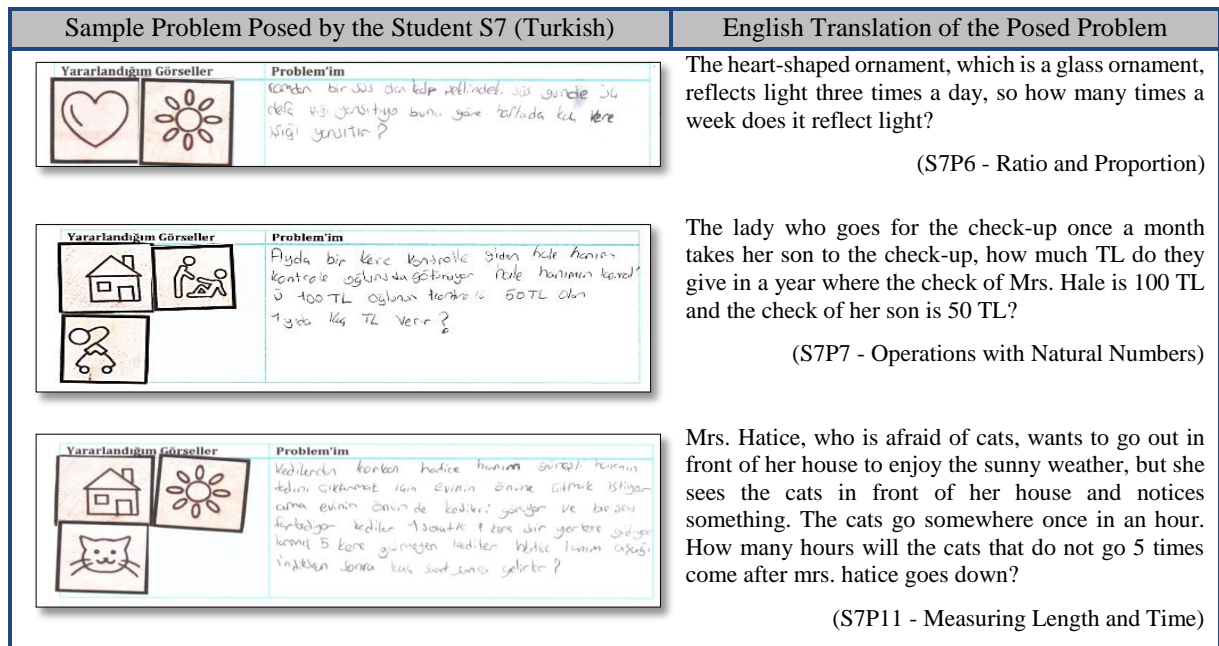 Sample Problem Posed by the Student S7 (Turkish)
English Translation of the Posed Problem
Yararlandığım Görseller
Problem'im
bir süs
günde
defa
göre haftada kaç kere
ışığı yansıtır?
The heart-shaped ornament, which is a glass ornament,
reflects light three times a day, so how many times a
week does it reflect light?
(S7P6 - Ratio and Proportion)
Yararlandığım Görseller
Problem'im
Ayda bir kere kontrole giden hale hanım
kontrole götürüyor hale hanımın
100 TL oğlunun 50 TL olan
1 yılda kaç TL verir?
The lady who goes for the check-up once a month
takes her son to the check-up, how much TL do they
give in a year where the check of Mrs. Hale is 100 TL
and the check of her son is 50 TL?
(S7P7 - Operations with Natural Numbers)
Yararlandığım Görseller
Problem'im
Kedilerden korkan hatice hanım güneşli havanın
için evinin önüne istiyor
ama evinin önünde kedileri görüyor ve bir şey
kediler 1 saatte 1 kere bir yerlere
5 kere kediler hatice hanım aşağı
indikten sonra kaç saat sonra
Mrs. Hatice, who is afraid of cats, wants to go out in
front of her house to enjoy the sunny weather, but she
sees the cats in front of her house and notices
something. The cats go somewhere once in an hour.
How many hours will the cats that do not go 5 times
come after mrs. hatice goes down?
(S7P11 - Measuring Length and Time)